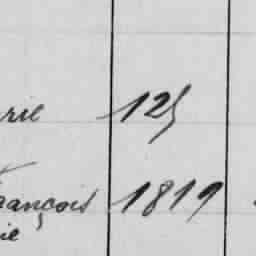 rie 125
rançois 1819
ie